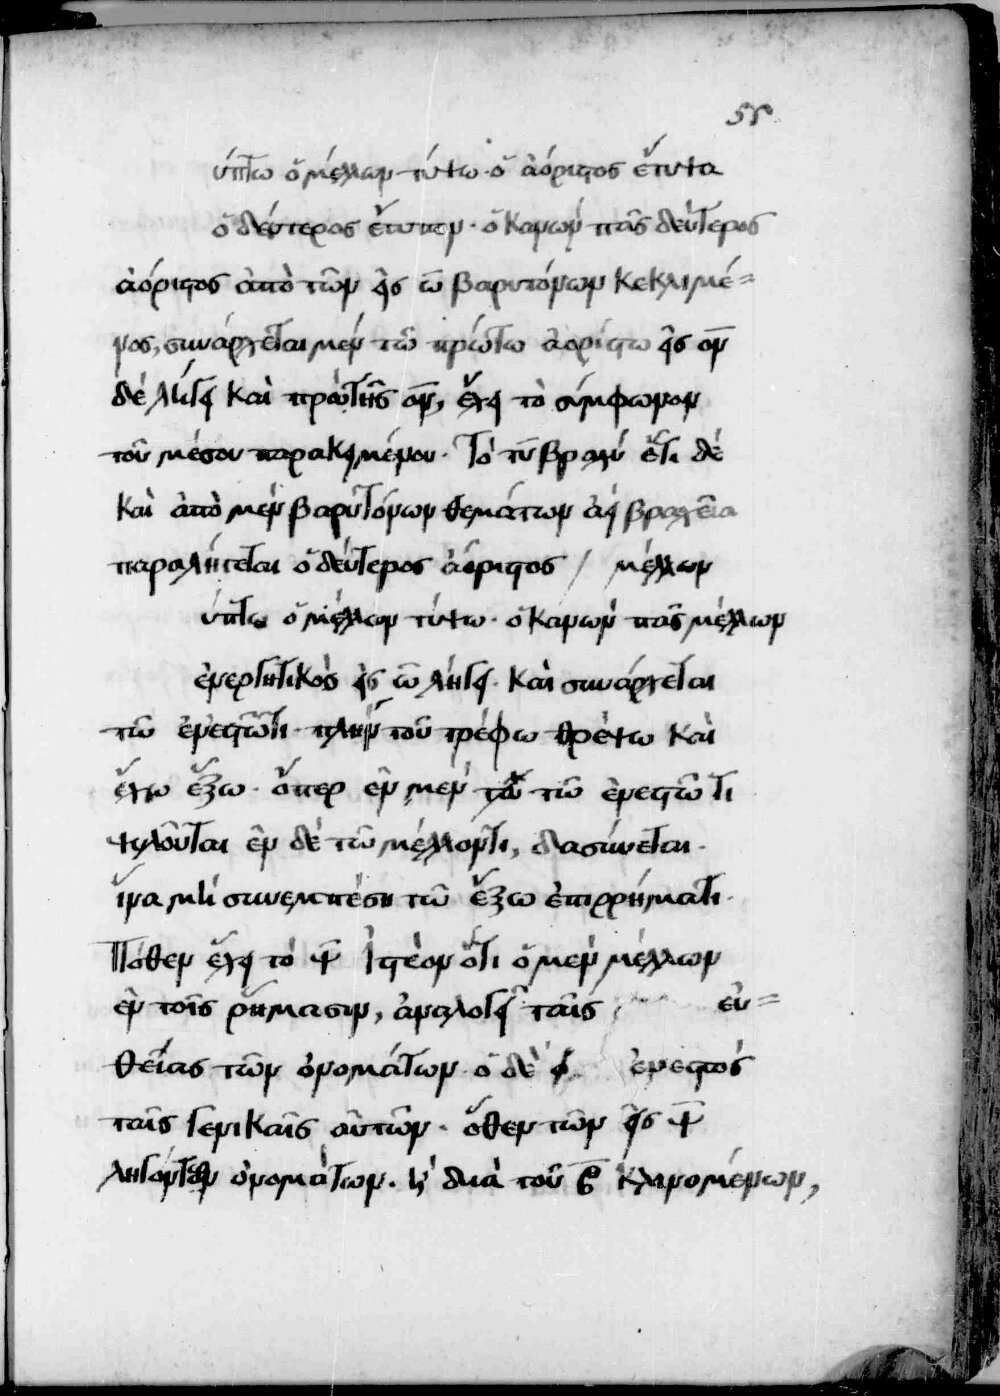 58
ύπτω ὁ μέλλων τύψω· ὁ ἀόριστος ἔτυψα
ὁ δεύτερος ἔτυπον· ὁ κανὼν πᾶς δεύτερος
ἀόριστος ἀπὸ τῶν εἰς ω βαρυτόνων κεκλιμέ=
νος, συνάρχεται μὲν τῶ πρώτω ἀορίστω εἰς ον
δὲ λήγει καὶ πρώτης ον, ἔχει τὸ σύμφωνον
τοῦ μέσου παρακειμένου· Τὸ τυ βραχύ ἔτι δὲ
καὶ ἀπὸ μὲν βαρυτόνων θεμάτων ἀεὶ βραχεῖα
παραλήγεται ὁ δεύτερος ἀόριστος / μέλλων
ύπτω ὁ μέλλων τύψω· ὁ κανὼν πᾶς μέλλων
ἐνεργητικὸς εἰς ω λήγει· καὶ συνάρχεται
τῶ ἐνεστῶτι· πλὴν τοῦ τρέφω θρέψω καὶ
ἔχω ἕξω· ὅπερ ἐν μὲν τῶ ἐνεστῶτι
ψιλοῦται ἐν δὲ τῶ μέλλοντι, δασύνεται·
ἵνα μὴ συνεμπέση τῶ ἔξω ἐπιρρήματι·
Πόθεν ἔχει τὸ ψ Ἰστέον ὅτι ὁ μὲν μέλλων
ἐν τοῖς ῥήμασιν, ἀναλογεῖ ταῖς εὐ=
θείας τῶν ὀνομάτων· ὁ δὲ ἐνεστὸς
ταῖς γενικαῖς αὐτῶν· ὅθεν τῶν εἰς ψ
ληγόντων ὀνομάτων· ἢ διὰ τοῦ β κλινομένων,